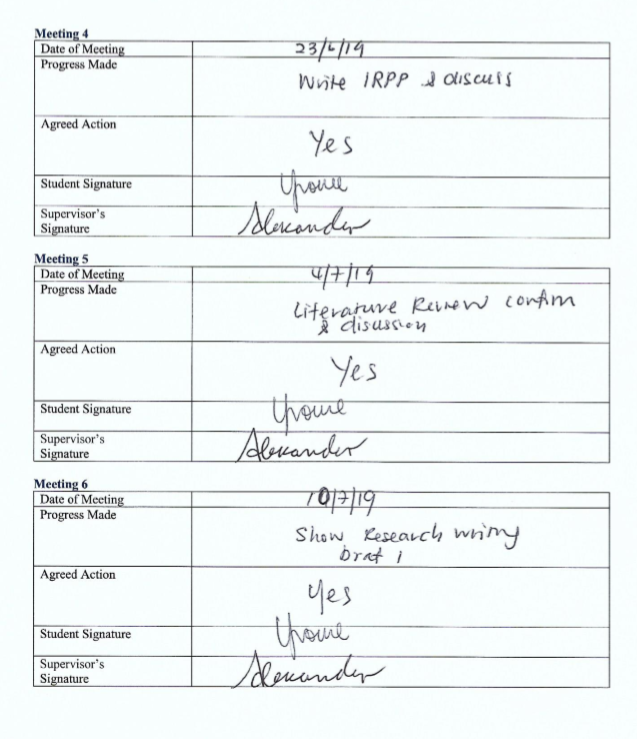 Meeting 4
Date of Meeting 23/6/19
Progress Made
Write IRPP & discuss
Agreed Action
Yes
Student Signature
Supervisor's Alexander
Signature
Meeting 5
Date of Meeting 4/7/19
Progress Made
Literature Review confirm
& disussion
Agreed Action
Yes
Student Signature
Supervisor's Alexander
Signature
Meeting 6
Date of Meeting 10/7/19
Progress Made
Show Research writing
Drat 1
Agreed Action
Yes
Student Signature
Supervisor's Alexander
Signature